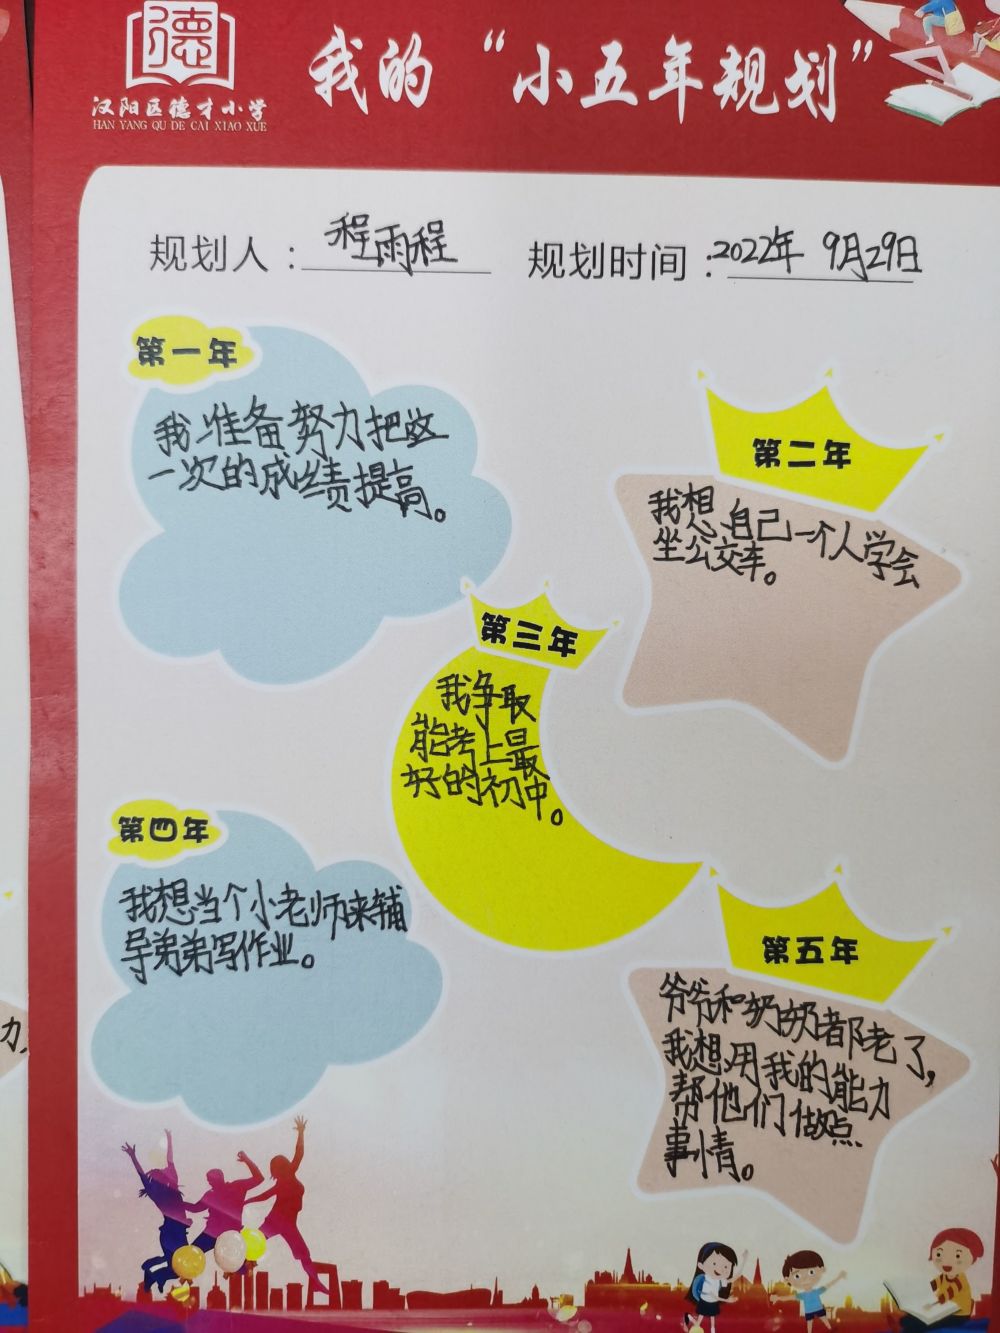 德
汉阳区德才小学
HAN YANG QU DE CAI XIAO XUE
我的“小五年规划”
规划人：程雨程
规划时间：2022年 9月29日
第一年
我准备努力把这
一次的成绩提高。
第二年
我想自己一个人学会
坐公交车。
第三年
我争取
能考上最
好的初中。
第四年
我想当个小老师来辅
导弟弟写作业。
第五年
爷爷和奶奶都老了，
我想用我的能力
帮他们做点
事情。
力，